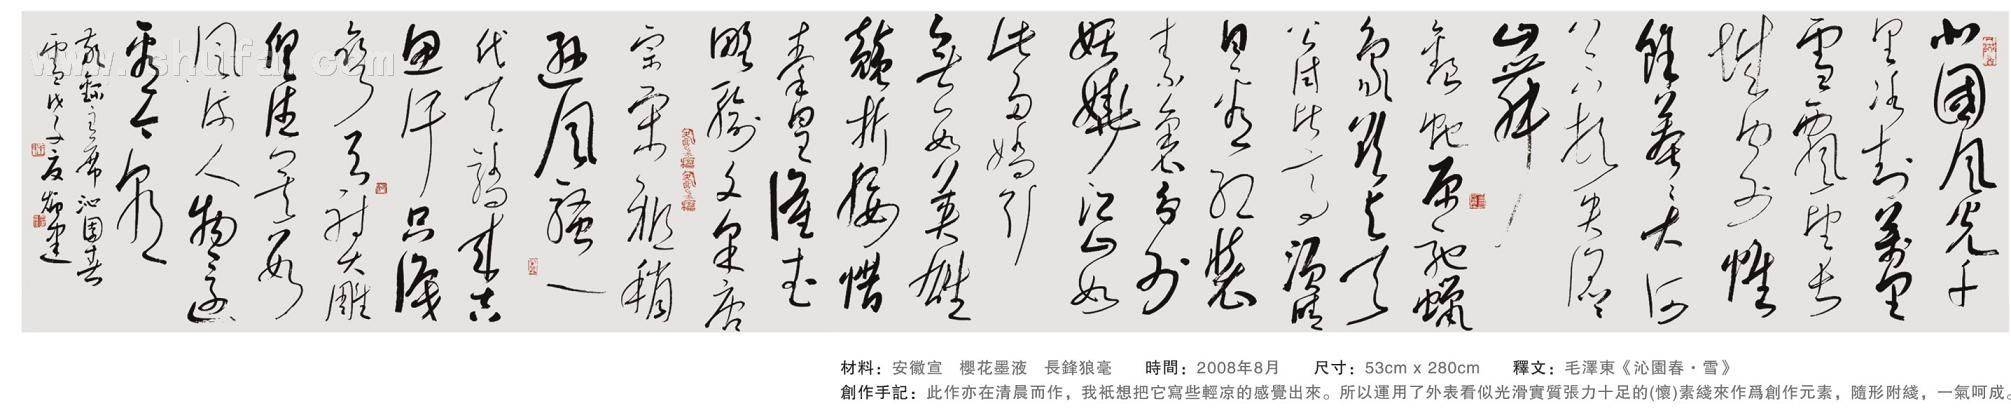 北國風光千
里冰封萬里
雪飄望長
城內外惟
餘莽莽大河
上下頓失滔滔
山舞
銀蛇原馳蠟
象欲與天
公試比高須晴
日看紅裝
素裹分外
妖嬈江山如
此多嬌引
無數英雄
競折腰惜
秦皇漢武
略輸文采唐
宗宋祖稍
遜風騷一
代天驕成吉
思汗只識
彎弓射大雕
俱往矣數
風流人物還
看今朝
敬錄主席沁園春
雪戊子夏
材料：安徽宣　櫻花墨液　長鋒狼毫　時間：2008年8月　尺寸：53cm x 280cm　釋文：毛澤東《沁園春·雪》
創作手記：此作亦在清晨而作，我衹想把它寫些輕凉的感覺出來。所以運用了外表看似光滑實質張力十足的(懷)素綫來作爲創作元素，隨形附綫，一氣呵成。